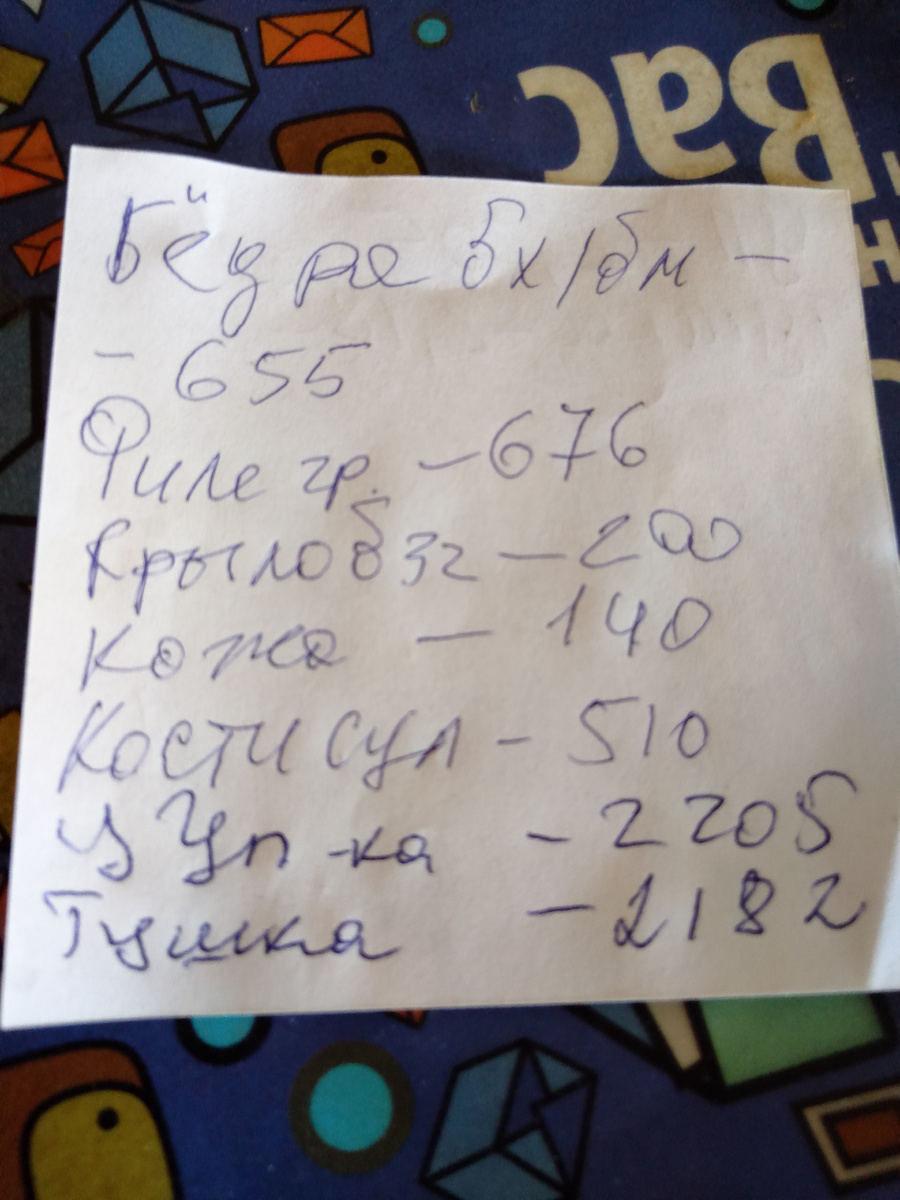 Вас
Бёдра бх/бм –
– 655
Филе гр. – 676
Крыло без – 200
Кожа – 140
Кости суп – 510
– 2205
Тушка – 2182